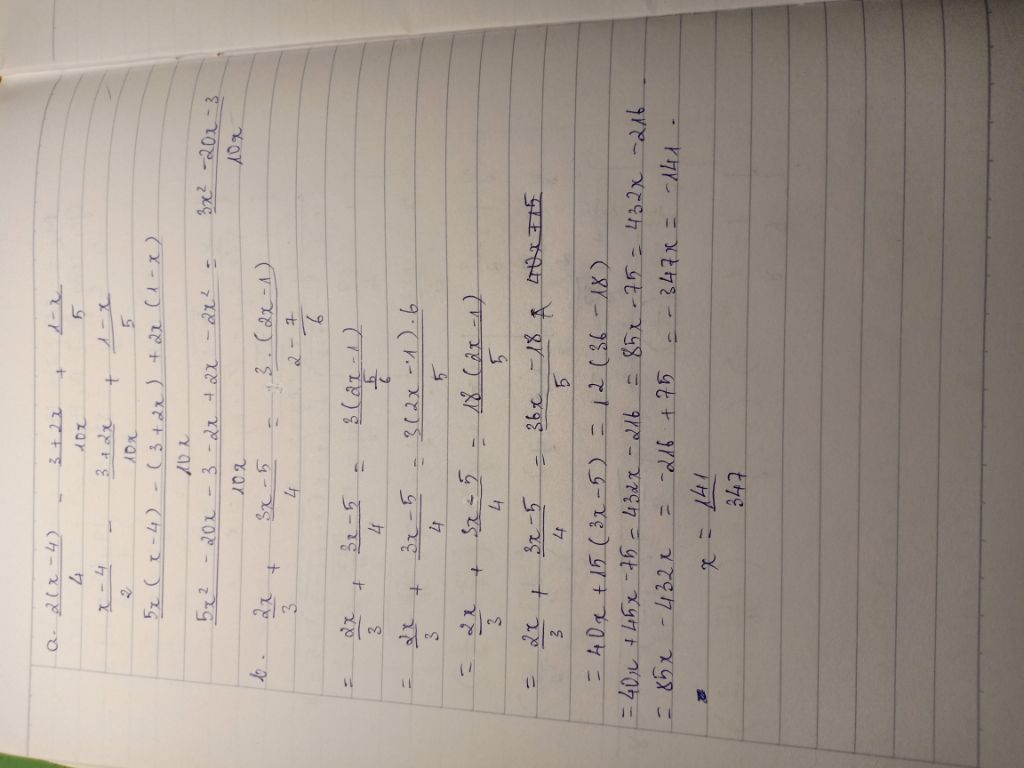 a. 2(x-4)/4 - 3+2x/10x + 1-x/5
x-4/2 - 3+2x/10x + 1-x/5
5x(x-4) - (3+2x) + 2x(1-x)/10x
5x² - 20x - 3 - 2x + 2x - 2x²/10x = 3x² - 20x - 3/10x
b. 2x/3 + 3x-5/4 = 3.(2x-1)/2 - 7/6
= 2x/3 + 3x-5/4 = 3(2x-1)/5/6
= 2x/3 + 3x-5/4 = 3(2x-1).6/5
= 2x/3 + 3x-5/4 = 18(2x-1)/5
= 2x/3 + 3x-5/4 = 36x-18/5 40x+15
= 40x + 15(3x-5) = 12(36-18)
= 40x + 45x - 75 = 432x - 216 = 85x - 75 = 432x - 216
= 85x - 432x = -216 + 75 = -347x = -141.
x = 141/347